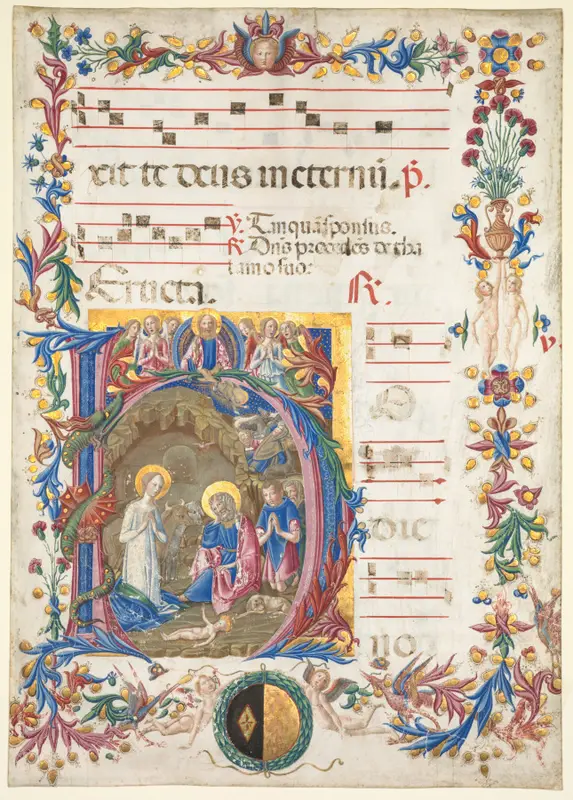 xit te deus in eternū. p̄.
V. Tanquā sponsus.
R. Dn̄s procedēs de tha
lamo suo:
Eructa. R.
V.
H
O
dic
no